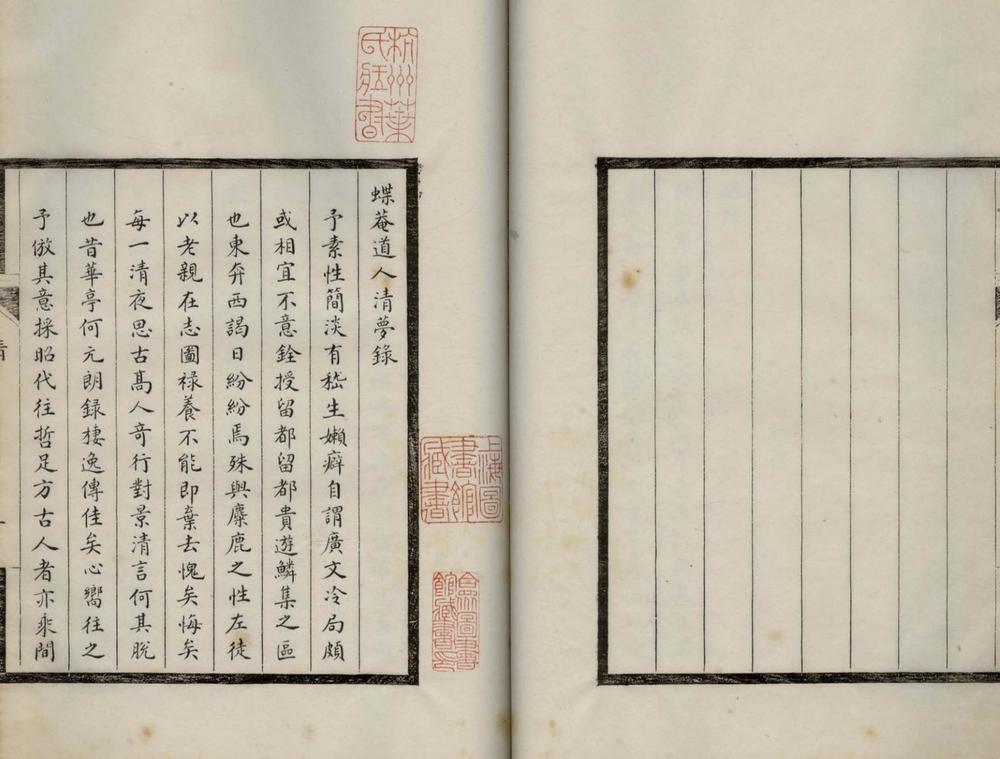 蝶菴道人清夢錄
予素性簡淡有嵇生嬾癖自謂廣文冷局頗
或相宜不意銓授留都留都貴遊鱗集之區
也東奔西謁日紛紛焉殊與麋鹿之性左徒
以老親在志圖祿養不能即棄去愧矣悔矣
每一清夜思古高人奇行對景清言何其脫
也昔華亭何元朗錄棲逸傳佳矣心嚮往之
予倣其意採昭代往哲足方古人者亦乘間
杭州葉
氏藏書
上海圖
書館
藏書
圖書
館藏書